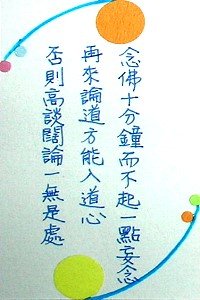 念佛十分鐘而不起一點妄念
再來論道方能入道心
否則高談闊論一無是處